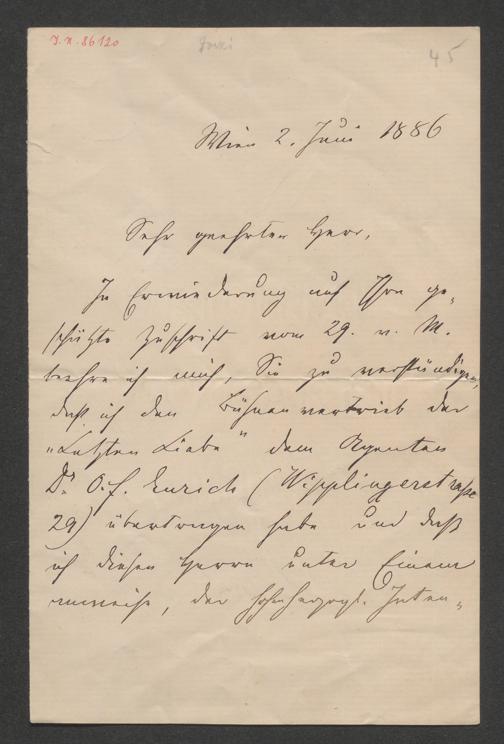 J.N. 86120
45
Wien 2. Juni 1886
Sehr geehrter Herr,
In Erwiederung auf Ihre ge-
schätzte Zuschrift vom 29. v. M.
beehre ich mich, Sie zu verständigen,
daß ich den Bühnenvertrieb der
„Letzten Liebe" dem Agenten
Dr. O. F. Eirich (Wipplingerstraße
29) übertragen habe und daß
ich diesen Herrn unter Einem
anweise, der Intend-